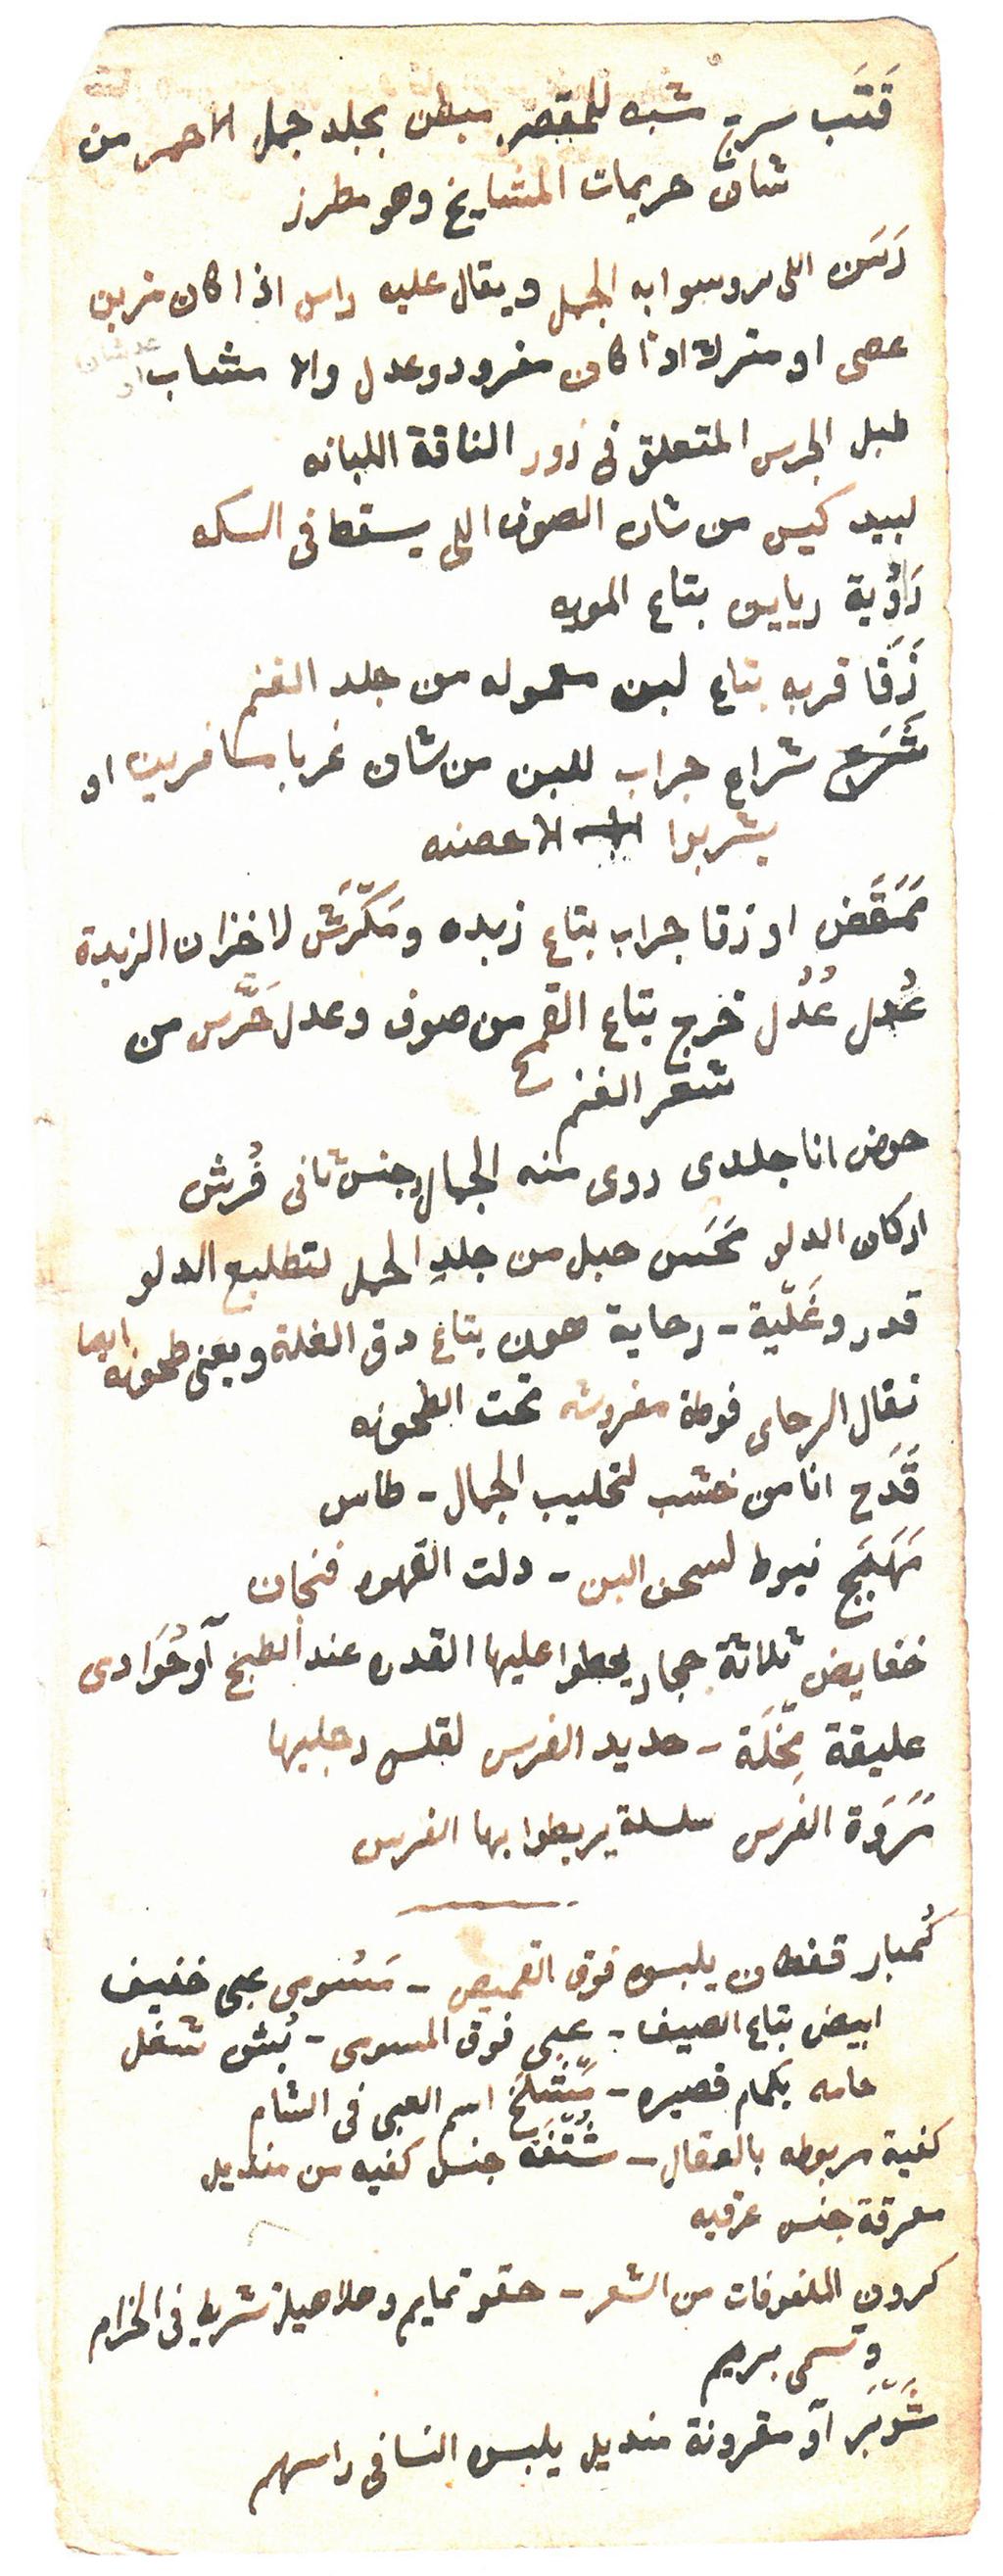 قَتَب سرج شبه للمقصر مبطن بجلد جمل الاحمر من
شان حريمات المشايخ وهو مطرز
رَسَن اللى بروسوا به الجمل ويقال عليه راس اذا كان خربن
عصى او مترك اذا كان مفرود وعدل والا مشعاب
طبل الجرس المتعلق فى زور الناقة اللبانه
لبيد كيس من شان الصوف اللى يسقط فى السكه
رَاوُية ريايين بتاع المويه
زَقَا قربه بتاع لبن معموله من جلد الغنم
شَرَع شراع جراب للبن من شان غربا مسافرين او
يشربوا الاحصنه
مَمَخَض او زقا جراب بتاع زبده ومَكّرَش لاخزان الزبدة
عُدل عُدُل خرج بتاع القمح من صوف وعدل خَرَّس من
شعر الغنم
حوض انا جلدى روى منه الجمال وجنس ثانى قُرش
اركان الدلو مَحَسَ حبل من جلد الجمل لتطليع الدلو
قدر وغَلّية - رحاية هون بتاع دق الغلة ويعنى طحونه ايضا
ثقال الرحاى فوطة مفروشه تحت الطحونه
قَدَح انا من خشب لتحليب الجمال - طاس
مَهَبَج نبوط لسحن البن - دلت القهوه فنجان
خفايض ثلاثة حجار يحطوا عليها القدره عند الطبخ آو حُوَادى
عليقة مِخْلَة - حديد الفرس لقلس رجليها
مَرَوَة الفَرس سلسلة يربطوا بها الفرس
كُمبار قفطان يلبسوه فوق القميص - مَسُومى عبى خفيف
ابيض بتاع الصيف - عبى فوق المسومى - بُشن شغل
حامه بكمام قصيره - مَتْتلَخ اسم العبى فى الشام
كفية مربوطه بالعقال - شُتْفَه جنس كفيه من منديل
معرقة جنس عرقيه
كرون الملفوفات من الشعر - حقو تمايم وهلاهيلة شريط فى الخزام
وتسمى بريم
شَوَيَر آو مقرونة منديل يلبسوه النسا فى راسهم